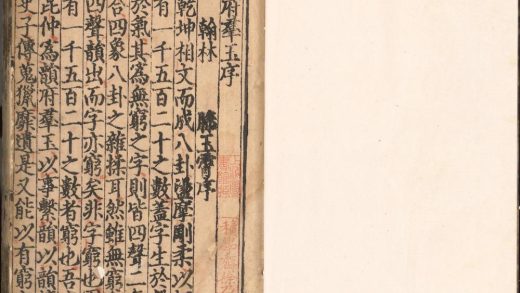 府羣玉序
翰林 滕玉霄序
乾坤相文而成八卦盪摩剛柔以
有一千五百二十之數蓋字生於
於氣其為無窮之字則皆四聲二
合四象八卦之雜揉耳然雖無窮
四聲韻出而字亦窮矣非字窮也
有一千五百二十之數者窮也吾
昆仲為韻府羣玉以事繫韻以韻
史子傳蒐獵靡遺是又能以有窮